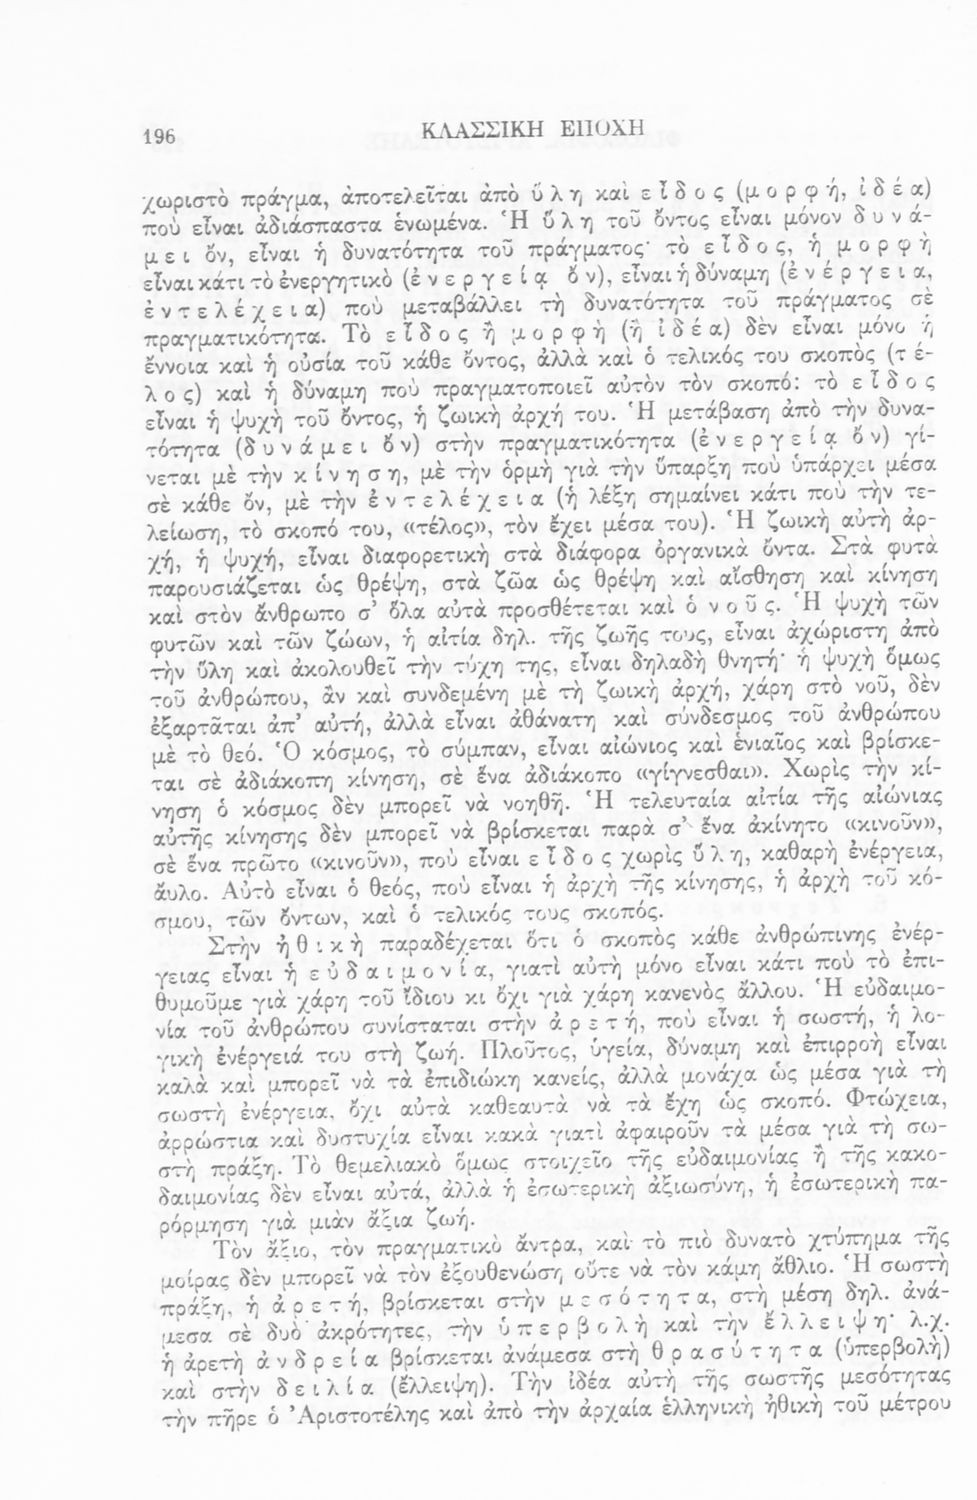 196
ΚΛΑΣΣΙΚΗ ΕΠΟΧΗ
χωριστὸ πράγμα, ἀποτελεῖται ἀπὸ ὕ λ η καὶ ε ἶ δ ο ς (μ ο ρ φ ή, ἰ δ έ α)
ποὺ εἶναι ἀδιάσπαστα ἑνωμένα. Ἡ ὕ λ η τοῦ ὄντος εἶναι μόνον δ υ ν ά-
μ ε ι ὄν, εἶναι ἡ δυνατότητα τοῦ πράγματος· τὸ ε ἶ δ ο ς, ἡ μ ο ρ φ ὴ
εἶναι κάτι τὸ ἐνεργητικὸ (ἐ ν ε ρ γ ε ί ᾳ ὄ ν), εἶναι ἡ δύναμη (ἐ ν έ ρ γ ε ι α,
ἐ ν τ ε λ έ χ ε ι α) ποὺ μεταβάλλει τὴ δυνατότητα τοῦ πράγματος σὲ
πραγματικότητα. Τὸ ε ἶ δ ο ς ἢ μ ο ρ φ ὴ (ἢ ἰ δ έ α) δὲν εἶναι μόνο ἡ
ἔννοια καὶ ἡ οὐσία τοῦ κάθε ὄντος, ἀλλὰ καὶ ὁ τελικός του σκοπὸς (τ έ-
λ ο ς) καὶ ἡ δύναμη ποὺ πραγματοποιεῖ αὐτὸν τὸν σκοπό: τὸ ε ἶ δ ο ς
εἶναι ἡ ψυχὴ τοῦ ὄντος, ἡ ζωικὴ ἀρχή του. Ἡ μετάβαση ἀπὸ τὴν δυνα-
τότητα (δ υ ν ά μ ε ι ὄ ν) στὴν πραγματικότητα (ἐ ν ε ρ γ ε ί ᾳ ὄ ν) γί-
νεται μὲ τὴν κ ί ν η σ η, μὲ τὴν ὁρμὴ γιὰ τὴν ὕπαρξη ποὺ ὑπάρχει μέσα
σὲ κάθε ὄν, μὲ τὴν ἐ ν τ ε λ έ χ ε ι α (ἡ λέξη σημαίνει κάτι ποὺ τὴν τε-
λείωση, τὸ σκοπό του, «τέλος», τὸν ἔχει μέσα του). Ἡ ζωικὴ αὐτὴ ἀρ-
χή, ἡ ψυχή, εἶναι διαφορετικὴ στὰ διάφορα ὀργανικὰ ὄντα. Στὰ φυτὰ
παρουσιάζεται ὡς θρέψη, στὰ ζῶα ὡς θρέψη καὶ αἴσθηση καὶ κίνηση
καὶ στὸν ἄνθρωπο σ' ὅλα αὐτὰ προσθέτεται καὶ ὁ ν ο ῦ ς. Ἡ ψυχὴ τῶν
φυτῶν καὶ τῶν ζώων, ἡ αἰτία δηλ. τῆς ζωῆς τους, εἶναι ἀχώριστη ἀπὸ
τὴν ὕλη καὶ ἀκολουθεῖ τὴν τύχη της, εἶναι δηλαδὴ θνητή· ἡ ψυχὴ ὅμως
τοῦ ἀνθρώπου, ἂν καὶ συνδεμένη μὲ τὴ ζωικὴ ἀρχή, χάρη στὸ νοῦ, δὲν
ἐξαρτᾶται ἀπ' αὐτή, ἀλλὰ εἶναι ἀθάνατη καὶ σύνδεσμος τοῦ ἀνθρώπου
μὲ τὸ θεό. Ὁ κόσμος, τὸ σύμπαν, εἶναι αἰώνιος καὶ ἑνιαῖος καὶ βρίσκε-
ται σὲ ἀδιάκοπη κίνηση, σὲ ἕνα ἀδιάκοπο «γίγνεσθαι». Χωρὶς τὴν κί-
νηση ὁ κόσμος δὲν μπορεῖ νὰ νοηθῆ. Ἡ τελευταία αἰτία τῆς αἰώνιας
αὐτῆς κίνησης δὲν μπορεῖ νὰ βρίσκεται παρὰ σ' ἕνα ἀκίνητο «κινοῦν»,
σὲ ἕνα πρῶτο «κινοῦν», ποὺ εἶναι ε ἶ δ ο ς χωρὶς ὕ λ η, καθαρὴ ἐνέργεια,
ἄυλο. Αὐτὸ εἶναι ὁ θεός, ποὺ εἶναι ἡ ἀρχὴ τῆς κίνησης, ἡ ἀρχὴ τοῦ κό-
σμου, τῶν ὄντων, καὶ ὁ τελικός τους σκοπός.
Στὴν ἠ θ ι κ ὴ παραδέχεται ὅτι ὁ σκοπὸς κάθε ἀνθρώπινης ἐνέρ-
γειας εἶναι ἡ ε ὐ δ α ι μ ο ν ί α, γιατὶ αὐτὴ μόνο εἶναι κάτι ποὺ τὸ ἐπι-
θυμοῦμε γιὰ χάρη τοῦ ἴδιου κι ὄχι γιὰ χάρη κανενὸς ἄλλου. Ἡ εὐδαιμο-
νία τοῦ ἀνθρώπου συνίσταται στὴν ἀ ρ ε τ ή, ποὺ εἶναι ἡ σωστή, ἡ λο-
γικὴ ἐνέργειά του στὴ ζωή. Πλοῦτος, ὑγεία, δύναμη καὶ ἐπιρροὴ εἶναι
καλὰ καὶ μπορεῖ νὰ τὰ ἐπιδιώκη κανείς, ἀλλὰ μονάχα ὡς μέσα γιὰ τὴ
σωστὴ ἐνέργεια, ὄχι αὐτὰ καθεαυτὰ νὰ τὰ ἔχη ὡς σκοπό. Φτώχεια,
ἀρρώστια καὶ δυστυχία εἶναι κακὰ γιατὶ ἀφαιροῦν τὰ μέσα γιὰ τὴ σω-
στὴ πράξη. Τὸ θεμελιακὸ ὅμως στοιχεῖο τῆς εὐδαιμονίας ἢ τῆς κακο-
δαιμονίας δὲν εἶναι αὐτά, ἀλλὰ ἡ ἐσωτερικὴ ἀξιωσύνη, ἡ ἐσωτερικὴ πα-
ρόρμηση γιὰ μιὰν ἄξια ζωή.
Τὸν ἄξιο, τὸν πραγματικὸ ἄντρα, καὶ τὸ πιὸ δυνατὸ χτύπημα τῆς
μοίρας δὲν μπορεῖ νὰ τὸν ἐξουθενώση οὔτε νὰ τὸν κάμη ἄθλιο. Ἡ σωστὴ
πράξη, ἡ ἀ ρ ε τ ή, βρίσκεται στὴν μ ε σ ό τ η τ α, στὴ μέση δηλ. ἀνά-
μεσα σὲ δυὸ ἀκρότητες, τὴν ὑ π ε ρ β ο λ ὴ καὶ τὴν ἔ λ λ ε ι ψ η· λ.χ.
ἡ ἀρετὴ ἀ ν δ ρ ε ί α βρίσκεται ἀνάμεσα στὴ θ ρ α σ ύ τ η τ α (ὑπερβολὴ)
καὶ στὴν δ ε ι λ ί α (ἔλλειψη). Τὴν ἰδέα αὐτὴ τῆς σωστῆς μεσότητας
τὴν πῆρε ὁ Ἀριστοτέλης καὶ ἀπὸ τὴν ἀρχαία ἑλληνικὴ ἠθικὴ τοῦ μέτρου